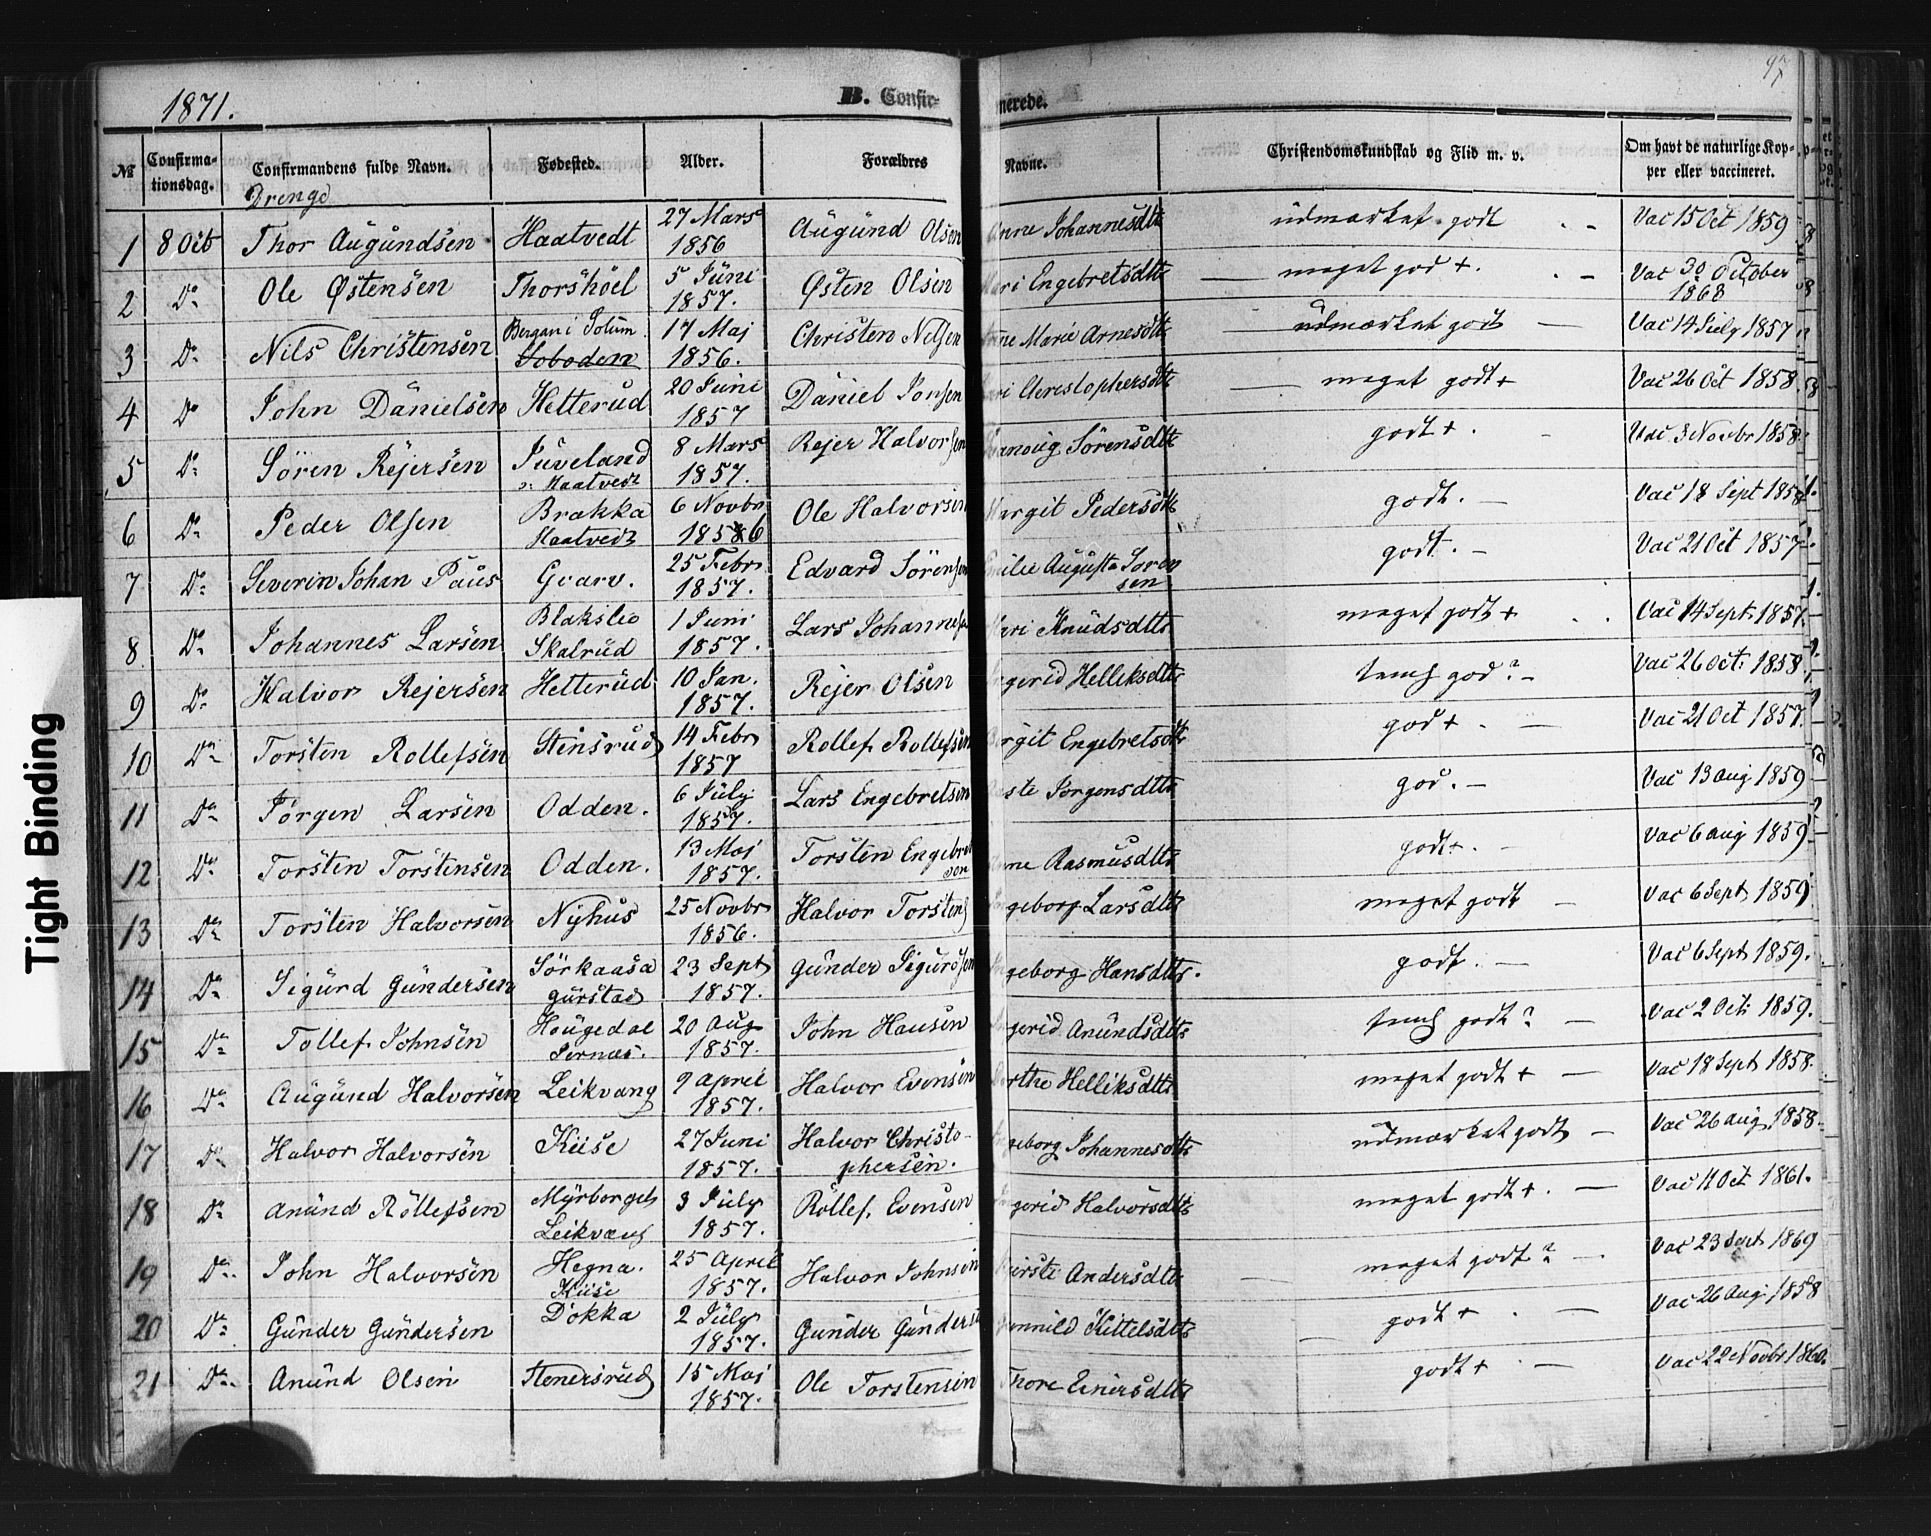 97
1871.
B. Confirmerede.
№ Confirmationsdag. Confirmandens fulde Navn. Fødested. Alder. Forældres Navne. Christendomskundskab og Flid m. v. Om havt de naturlige Kopper eller vaccineret.
Drenge
1 8 Octb Thor Augundsen Haatvedt 27 Mars 1856 Augund Olsen Anne Johannesdtr udmærket godt - Vac 15 Oct 1859
2 Do Ole Østensen Thorshöel 5 Juni 1857. Østen Olsen Kari Engebretsdtr meget god +. - Vac 30 October 1868
3 Do Nils Christensen Bergan i Solum 17 Maj 1856. Christen Nilsen Anne Marie Arnesdtr udmærket godt - Vac 14 July 1857
4 Do John Danielsen Hetterud 20 Juni 1857 Daniel Jonsen Kari Christophersdtr meget godt + Vac 26 Oct 1858.
5 Do Sören Rejersen Juveland v: Haatvedt 8 Mars 1857. Rejer Halvorsen Sörensdtr godt +. - Vac 3 Novbr 1858.
6 Do Peder Olsen Brakka Haatvedt 6 Novbr 1856 Ole Halvorsen Margit Pedersdtr godt. - Vac 18 Sept 1858
7 Do Severin Johan Paus Gvarv. 25 Febr 1857. Edvard Sörensen Emilie Augusta Sorensen godt. - Vac 21 Oct 1857
8 Do Johannes Larsen Blakslie Skalrud 1 Juni 1857. Lars Johannesen Kari Knudsdtr meget godt + Vac 14 Sept. 1857.
9 Do Halvor Rejersen Hetterud 10 Jan. 1857. Rejer Olsen Ingerid Helliksdtr temß god? - Vac 26 Oct. 1858.
10 Do Torsten Rollefsen Stensrud 14 Febr 1857 Rollef Rollefsen Birgit Engebretsdtr god +. - Vac 21 Oct 1857.
11 Do Jörgen Larsen Odden. 6 July 1857. Lars Engebretsen Aste Jorgensdtr god. - Vac 13 aug 1859
12 Do Torsten Torstensen Odden. 13 Maj 1857. Torsten Engebretson Anne Rasmusdtr godt +. - Vac 6 aug 1859
13 Do Torsten Halvorsen Nyhus 25 Novbr 1856. Halvor Torstens Ingeborg Larsdtr meget godt - Vac 6 Sept 1859
14 Do Sigurd Gundersen Sörkaasa gurstad 23 Sept 1857. Gunder Sigurdsen Ingeborg Hansdtr. godt. - Vac 6 Sept 1859.
15 Do Tollef Johnsen Haugedal Jernæs. 20 Aug 1857. John Hansen Ingerid Anundsdtr temß godt? - Vac 2 Oct. 1859.
16 Do Augund Halvorsen Leikvang 9 April 1857. Halvor Evensen Dorthe Helliksdtr meget godt + - Vac 18 Sept 1858.
17 Do Halvor Halvorsen Kiise 27 Juni 1857. Halvor Christophersen. Ingeborg Johannesdtr udmærket godt - Vac 26 aug 1858.
18 Do Anund Rollefsen Myrborget Leikvang 3 July 1857. Rollef Evensen Ingerid Halvorsdtr meget godt +. - Vac 11 Oct 1861.
19 Do John Halvorsen Hegna. Kiise 25 April 1857. Halvor Johnsen Kirsti Andersdtr meget godt? - Vac 23 Sept 1869
20 Do Gunder Gundersen Dokka 2 July 1857. Gunder Gundersen Gunnild Kittelsdtr godt +. - Vac 26 Aug 1858
21 Do Anund Olsen Stenersrud 15 Maj 1857. Ole Torstensen Thore Einersdtr godt +. - Vac 22 Novbr 1860.
Tight Binding